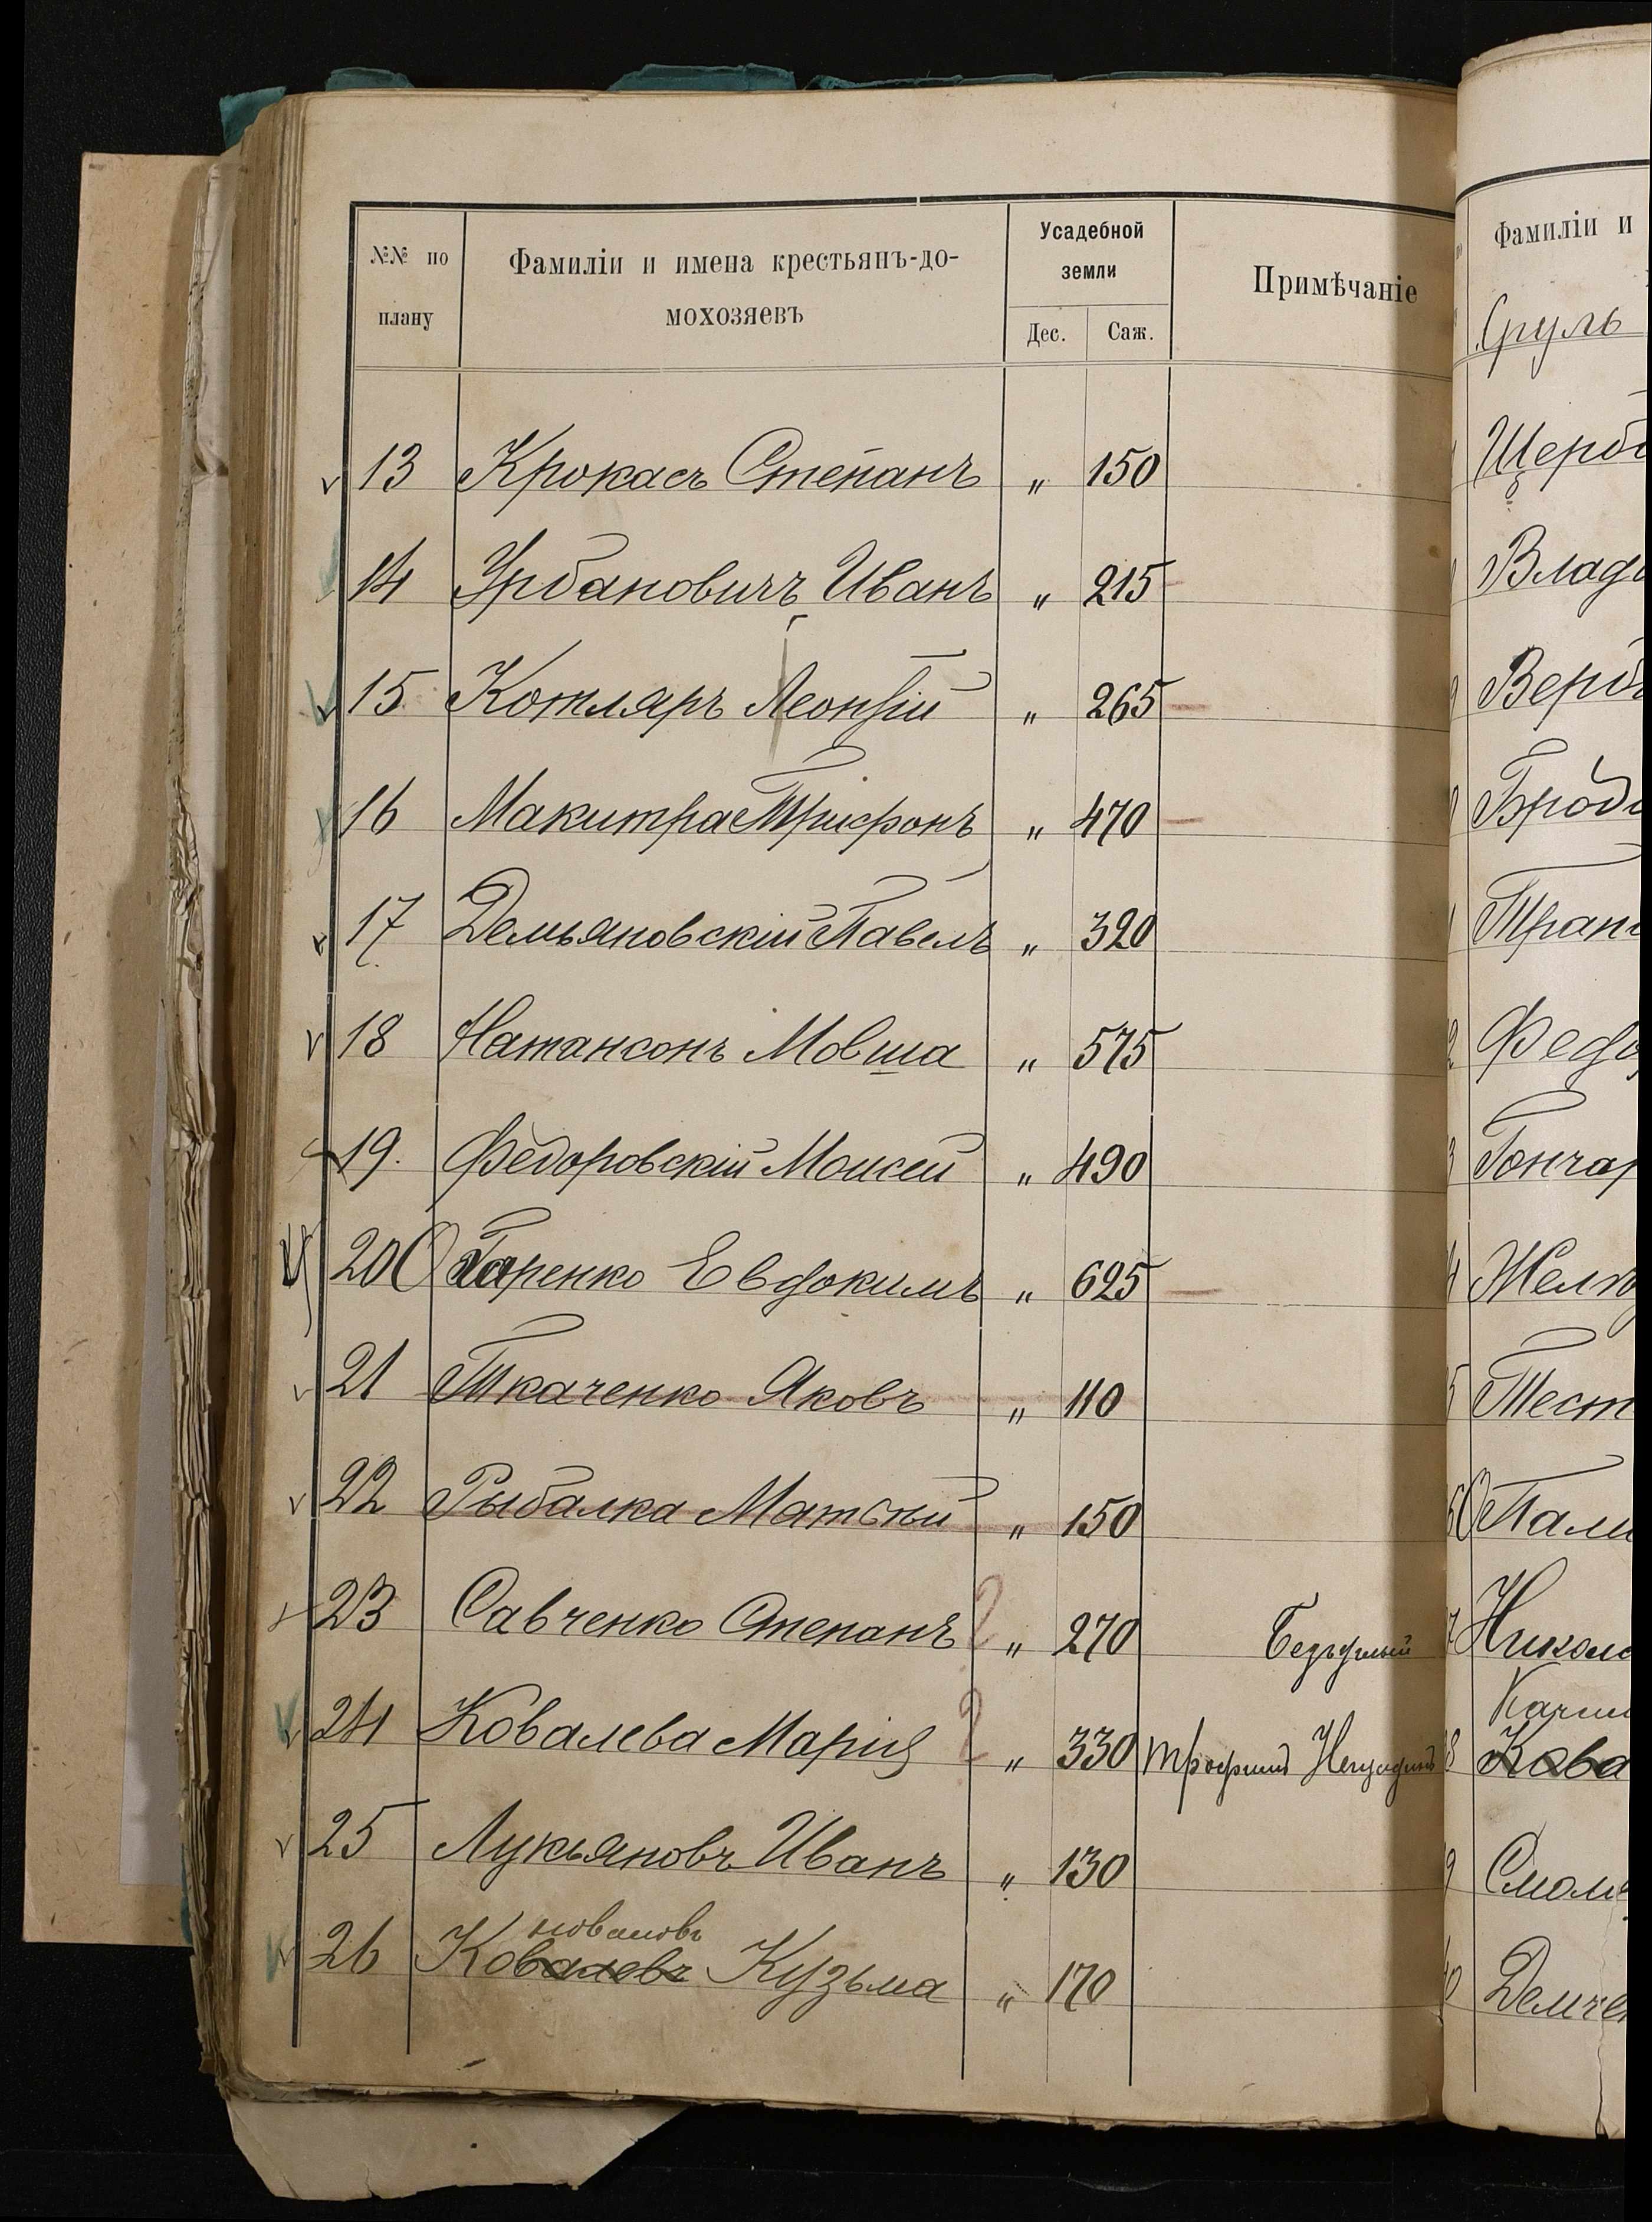 №№ по плану
Фамиліи и имена крестьянъ-до-
мохозяевъ
Усадебной
земли
Дес. Саж.
Примѣчаніе
13 Крокасъ Степанъ " 150
14 Урбановичъ Иванъ " 215
15 Котляръ Леонтій " 265
16 Макитра Трифонъ " 470
17 Демьяновскій Павелъ " 320
18 Натансонъ Мовша " 575
19. Федоровскій Моисей " 490
20 Евдокимъ " 625
21 Ткаченко Яковъ " 110
22 Рыбалка Матѳѣй " 150
23 Савченко Степанъ " 270
24 Ковалева Марія " 330
25 Лукьяновъ Иванъ " 130
26 Ковалевъ Кузьма " 170
Фамиліи и
Сруль
Щерб
Влад
Верб
Брод
Федо
Гончар
Желт
Тест
Пали
Никол
Кова
Демче